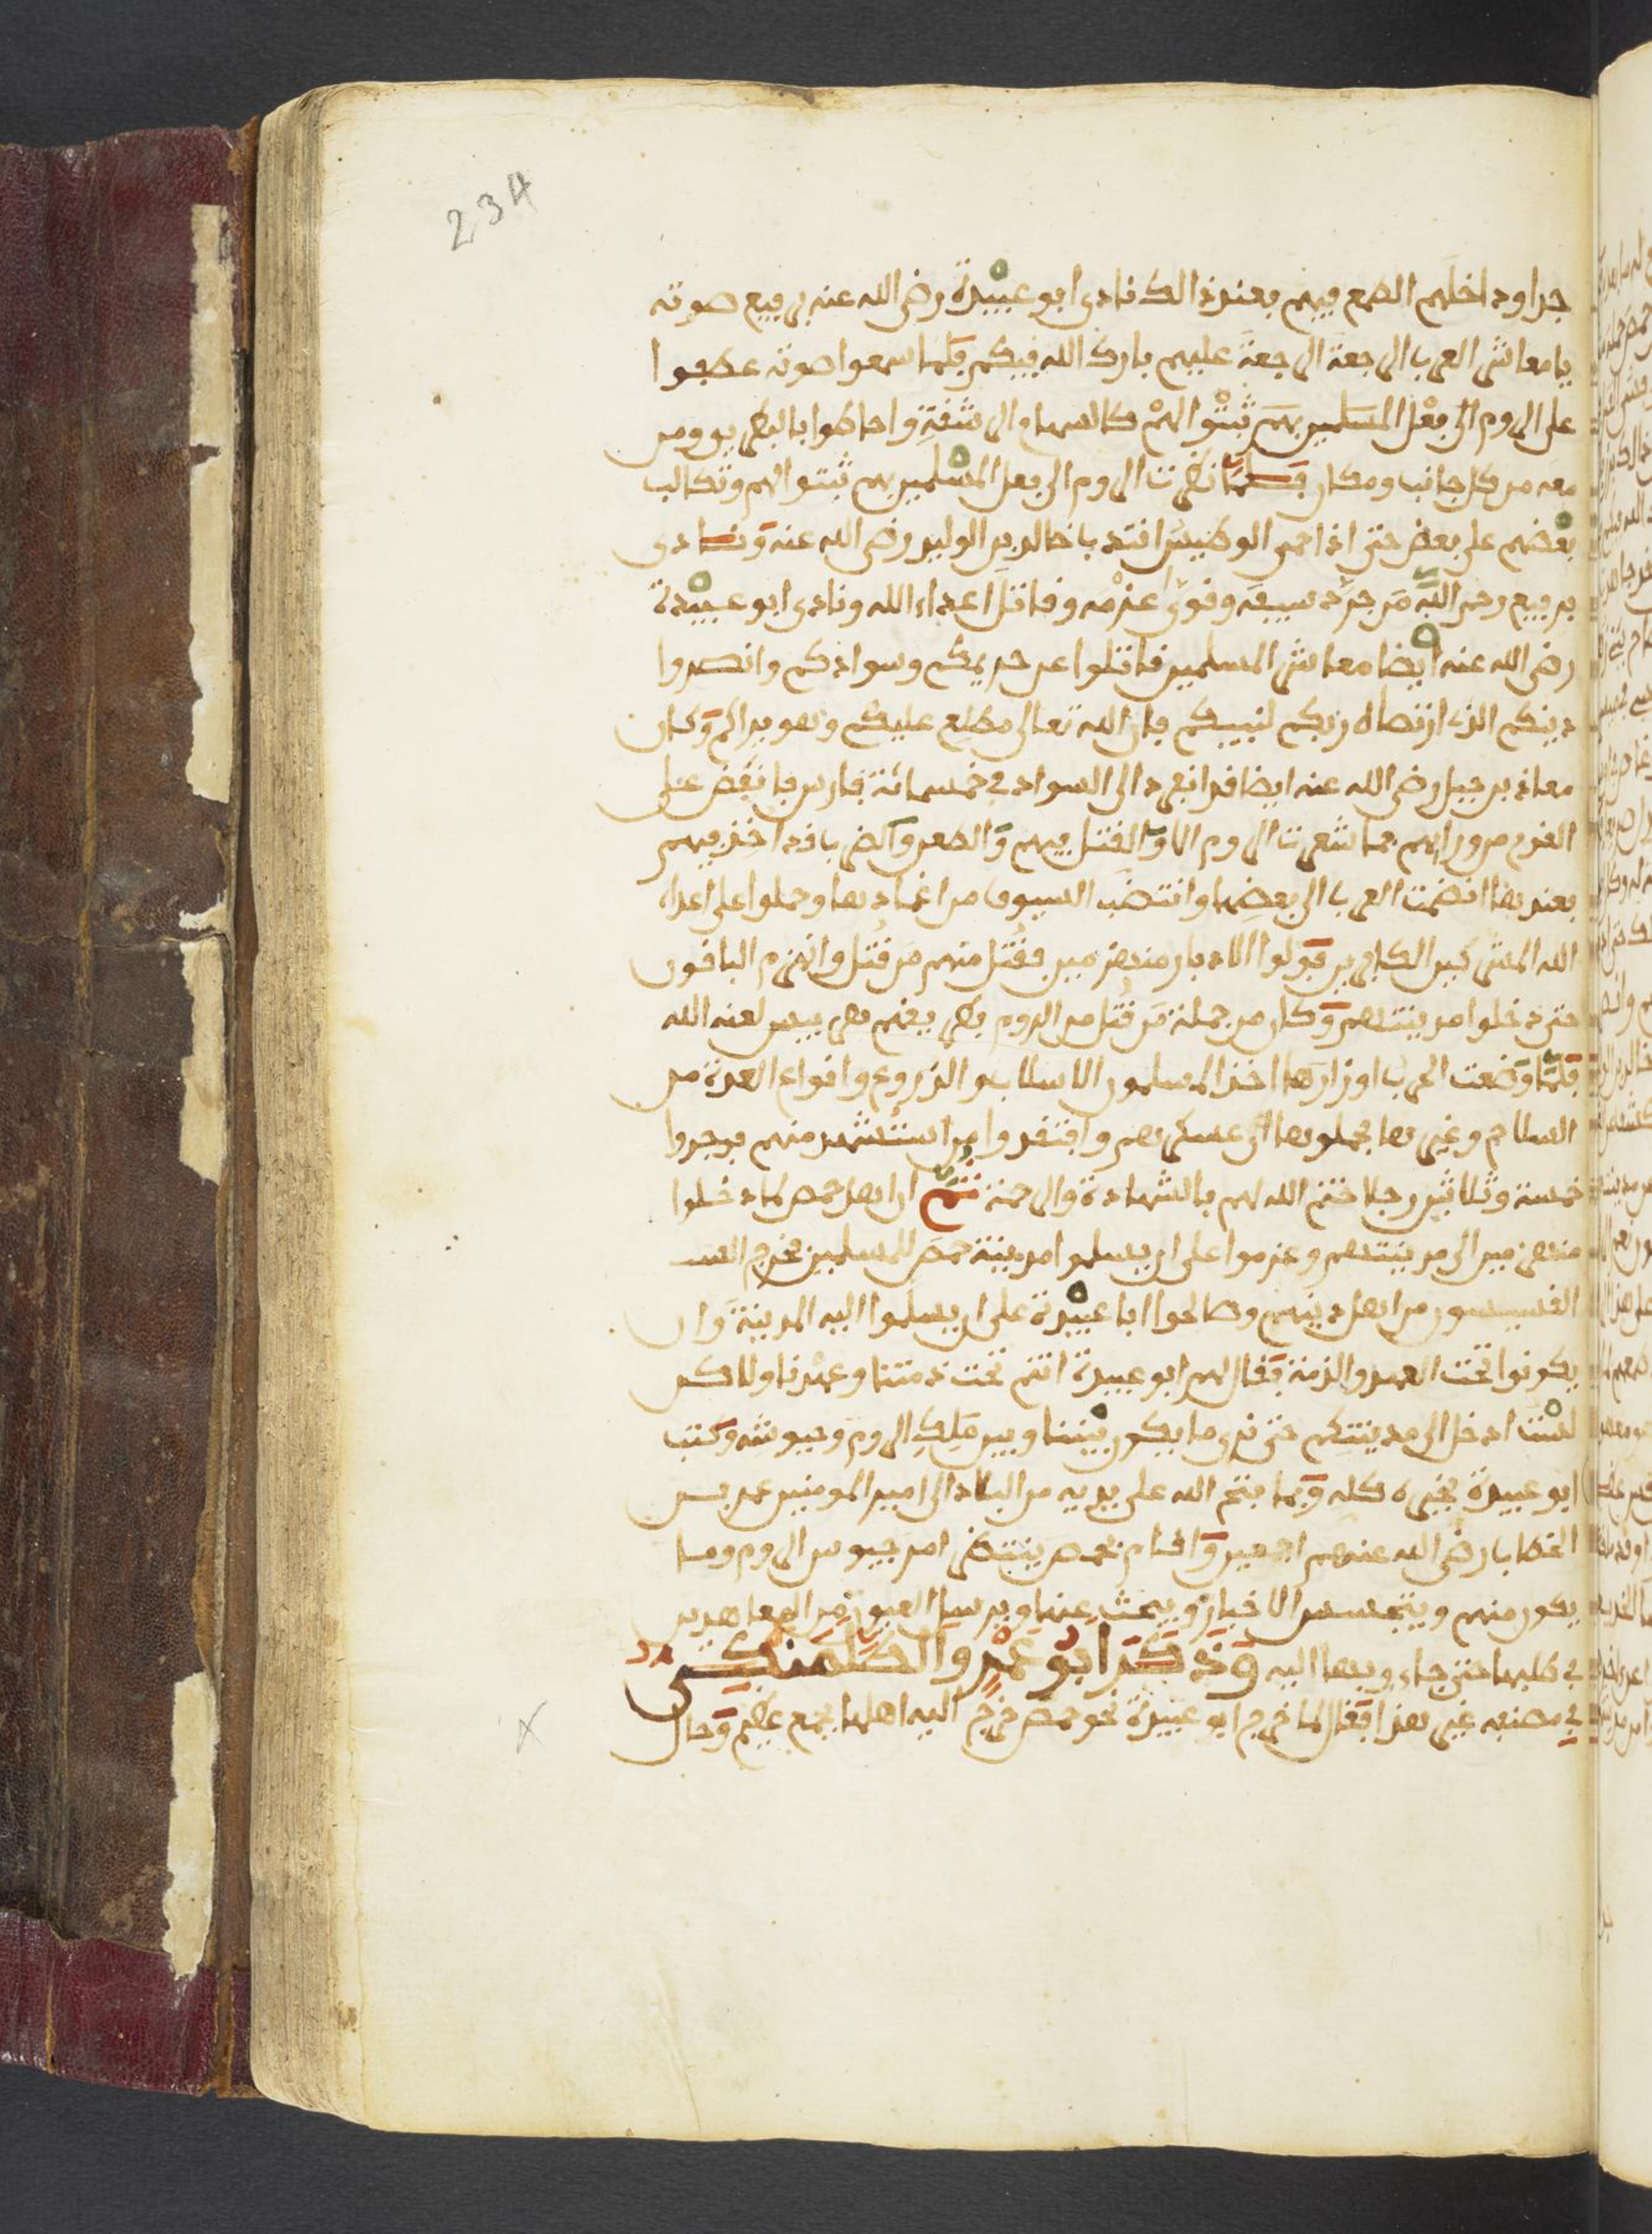 234
جدا ودخلهم الطمع فيهم فعند ذالك نادى ابو عبيدة رضي الله عنه برفيع صوته
يا معاشر العرب الرجعة الرجعة عليهم بارك الله فيكم فلما سمعوا صوته عطفوا
على الروم الى فعل المسلمين بهم ثبتوا لهم كالسهام الرشقة واحاطوا بالبطريق ومن
معه من كل جانب ومكان فلما نظرت الروم الى فعل المسلمين بهم ثبتوا لهم وتكالب
بعضهم على بعض حتى اذا حمى الوطيس انتدبا خالد بن الوليد رضي الله عنه ونادى
برفيع رحم الله من جرد سيفه وقوى عزمه وقاتل اعداء الله ونادى ابو عبيدة
رضي الله عنه ايضا معاشر المسلمين قاتلوا عن حريمكم وسوادكم وانصروا
دينكم الذي ارتضاه ربكم لنبيكم فان الله تعالى مطلع عليكم وهو يراكم وكان
معاذ بن جبل رضي الله عنه ايضا قد انفرد الى السواد في خمسمائة فارس فانقض على
القوم من ورائهم فما شعرت الروم الا والقتل فيهم والطعن والضرب قد اخذ فيهم
فعندها انضمت العرب الى بعضها وانتضب السيوف من اغمادها وحملوا على اعداء
الله المشركين الكافرين فولوا الادبار منهزمين فقتل منهم من قتل وانهزم الباقون
حتى دخلوا مدينتهم وكان من جملة من قتل من الروم بطريقهم هربيس لعنه الله
فلما وضعت الحرب اوزارها اخذ المسلمون الاسلاب والزروع وانواع العدة من
السلاح وغيرها فحملوها الى عسكرهم وافتقدوا من استشهد منهم فوجدوا
خمسة وثلاثين رجلا ختم الله لهم بالشهادة والرحمة ثم ان اهل حمص لما دخلوا
منهزمين الى مدينتهم وعزموا على ان يسلموا مدينة حمص للمسلمين فخرج
القسيسون من اهل دينهم وصالحوا ابا عبيدة على ان يسلموا اليه المدينة وان
يكونوا تحت العهد والذمة فقال لهم ابو عبيدة انتم تحت ذمتنا وعهدنا ولاكن
لست ادخل الى مدينتكم حتى نرى ما يكون بيننا وبين ملك الروم وجيوشه وكتب
ابو عبيدة بخبره كله وبما فتح الله على يديه من البلاد الى امير المومنين عمر بن
الخطاب رضي الله عنهم اجمعين واقام بحمص ينتظر امر جيوش الروم وما
يكون منهم ويتجسس الاخبار ويبحث عنها ويرسل العيون من المعاهدين
في طلبها حتى جاءوه بها اليه وذكر ابو عمر والطلمنكي
في مصنفه غير هذا فقال لما خرج ابو عبيدة نحو حمص خرج اليه اهلها بجمع عظيم وحال